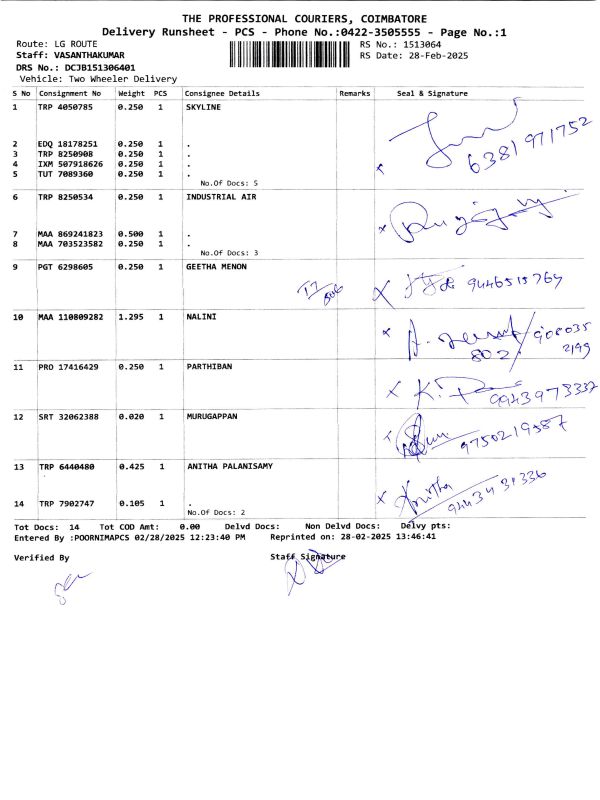 THE PROFESSIONAL COURIERS, COIMBATORE
Delivery Runsheet - PCS - Phone No.:0422-3505555 - Page No.:1
Route: LG ROUTE RS No.: 1513064
Staff: VASANTHAKUMAR RS Date: 28-Feb-2025
DRS No.: DCJB151306401
Vehicle: Two Wheeler Delivery
S No Consignment No Weight PCS Consignee Details Remarks Seal & Signature
1 TRP 4050785 0.250 1 SKYLINE
6381971752
2 EDQ 18178251 0.250 1 .
3 TRP 8250908 0.250 1 .
4 IXM 507918626 0.250 1 .
5 TUT 7089360 0.250 1 .
No.Of Docs: 5
6 TRP 8250534 0.250 1 INDUSTRIAL AIR
7 MAA 869241823 0.500 1 .
8 MAA 703523582 0.250 1 .
No.Of Docs: 3
9 PGT 6298605 0.250 1 GEETHA MENON
9446515764
10 MAA 110809282 1.295 1 NALINI
802
11 PRO 17416429 0.250 1 PARTHIBAN
9943973337
12 SRT 32062388 0.020 1 MURUGAPPAN
9750219587
13 TRP 6440480 0.425 1 ANITHA PALANISAMY
Anitha
9443431336
14 TRP 7902747 0.105 1 .
No.Of Docs: 2
Tot Docs: 14 Tot COD Amt: 0.00 Delvd Docs: Non Delvd Docs: Delvy pts:
Entered By :POORNIMAPCS 02/28/2025 12:23:40 PM Reprinted on: 28-02-2025 13:46:41
Verified By Staff Signature